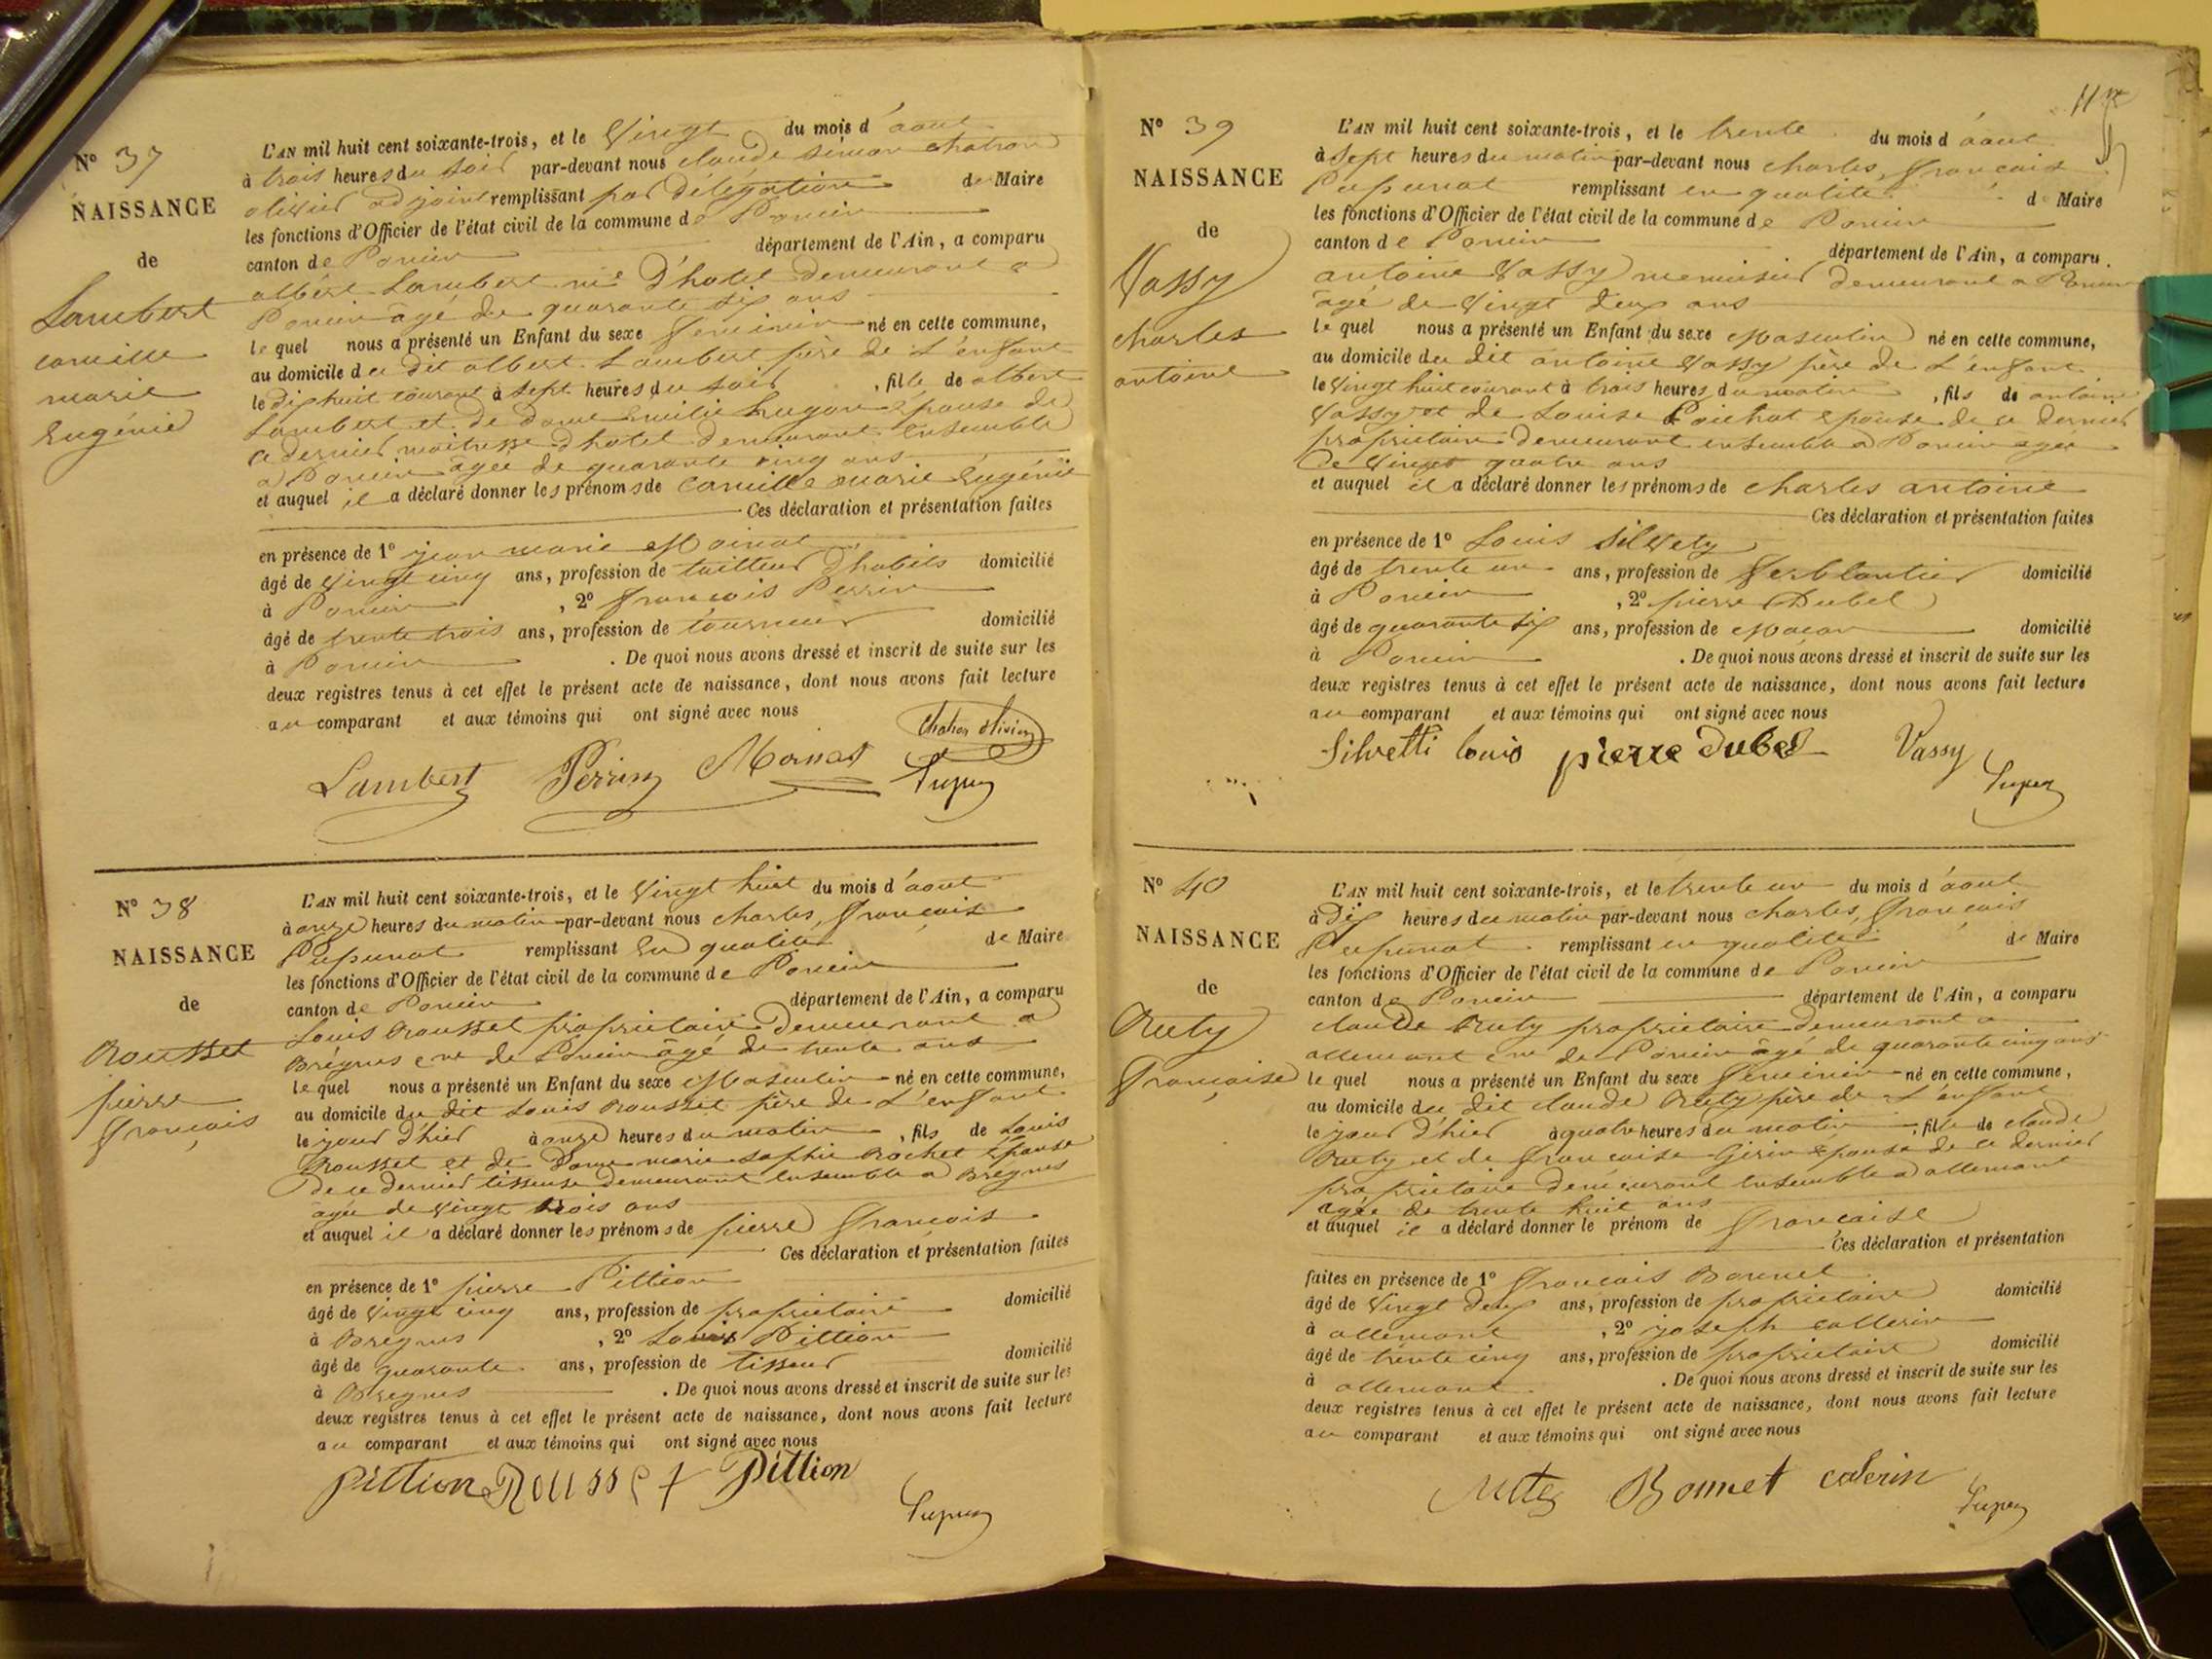 N° 37
NAISSANCE
de
Lambert
camille
marie
Eugénie
L'AN mil huit cent soixante-trois, et le Vingt du mois d'aout
à trois heures du soir par-devant nous claude simon chatron
olivier adjoint remplissant par délégation de Maire
les fonctions d'Officier de l'état civil de la commune de Poncin
canton de Poncin département de l'Ain, a comparu
albert Lambert me D'hotel demeurant a
Poncin âgé de quarante six ans
le quel nous a présenté un Enfant du sexe feminin né en cette commune,
au domicile du dit albert Lambert père de L'enfant
le dix huit courant à sept heures du soir, fille de albert
Lambert et de dame Emilie hugon épouse de
ce dernier maitresse d'hotel demeurant Ensemble
a Poncin âgée de quarante cinq ans
et auquel il a déclaré donner les prénoms de Camille marie Eugénie
Ces déclaration et présentation faites
en présence de 1° jean marie Moinat
âgé de Vingt cinq ans, profession de tailleur d'habits domicilié
à Poncin, 2° françois Perrin
âgé de trente trois ans, profession de tourneur domicilié
à Poncin. De quoi nous avons dressé et inscrit de suite sur les
deux registres tenus à cet effet le présent acte de naissance, dont nous avons fait lecture
au comparant et aux témoins qui ont signé avec nous
Lambert Perrin Moinat
N° 38
NAISSANCE
de
Rousset
pierre
françois
L'AN mil huit cent soixante-trois, et le Vingt huit du mois d'aout
à onze heures du matin par-devant nous charles, françois
Pupunat remplissant En qualité de Maire
les fonctions d'Officier de l'état civil de la commune de Poncin
canton de Poncin département de l'Ain, a comparu
Louis Rousset propriétaire Demeurant a
Brégnes cne de Poncin âgé de trente ans
le quel nous a présenté un Enfant du sexe Masculin né en cette commune,
au domicile du dit Louis Rousset père de L'enfant
le jour d'hier à onze heures du matin, fils de Louis
Rousset et de Dame marie sophie Rochet Épouse
De ce dernier tisseuse demeurant Ensemble a Brégnes
agée de Vingt trois ans
et auquel il a déclaré donner les prénoms de pierre françois
Ces déclaration et présentation faites
en présence de 1° pierre Pittion
âgé de Vingt cinq ans, profession de propriétaire domicilié
à Bregnes, 2° Louis Pittion
âgé de quarante ans, profession de tisseur domicilié
à Bregnes. De quoi nous avons dressé et inscrit de suite sur les
deux registres tenus à cet effet le présent acte de naissance, dont nous avons fait lecture
au comparant et aux témoins qui ont signé avec nous
pittion Rousset Pittion
N° 39
NAISSANCE
de
Vassy
charles
antoine
L'AN mil huit cent soixante-trois, et le trente du mois d'aout
à Sept heures du matin par-devant nous charles, françois
Pupunat remplissant en qualité de Maire
les fonctions d'Officier de l'état civil de la commune de Poncin
canton de Poncin département de l'Ain, a comparu
antoine Vassy menuisier demeurant a Poncin
âgé de Vingt deux ans
le quel nous a présenté un Enfant du sexe Masculin né en cette commune,
au domicile du dit antoine Vassy père de L'enfant
le Vingt huit courant à trois heures du matin, fils de antoine
Vassy et de Louise Pochat épouse de ce dernier
propriétaire demeurant ensemble a Poncin agée
De Vingt quatre ans
et auquel il a déclaré donner les prénoms de charles antoine
Ces déclaration et présentation faites
en présence de 1° Louis Silvety
âgé de trente un ans, profession de ferblantier domicilié
à Poncin, 2° pierre Dubel
âgé de quarante six ans, profession de Maçon domicilié
à Poncin. De quoi nous avons dressé et inscrit de suite sur les
deux registres tenus à cet effet le présent acte de naissance, dont nous avons fait lecture
au comparant et aux témoins qui ont signé avec nous
Silvetti louis pierre Dubel Vassy
N° 40
NAISSANCE
de
Ruty
françoise
L'AN mil huit cent soixante-trois, et le trente un du mois d'aout
à Dix heures du matin par-devant nous charles, françois
Pupunat remplissant en qualité de Maire
les fonctions d'Officier de l'état civil de la commune de Poncin
canton de Poncin département de l'Ain, a comparu
claude Ruty propriétaire demeurant a
allement cne de Poncin âgé de quarante cinq ans
le quel nous a présenté un Enfant du sexe feminin né en cette commune,
au domicile du dit claude Ruty père de L'enfant
le jour d'hier à quatre heures du matin, fille de claude
Ruty et de françoise Girin épouse de ce dernier
propriétaire demeurant Ensemble a allement
agée de trente huit ans
et auquel il a déclaré donner le prénom de françoise
Ces déclaration et présentation
faites en présence de 1° françois Bonnet
âgé de Vingt deux ans, profession de propriétaire domicilié
à allement, 2° joseph collerin
âgé de trente cinq ans, profession de propriétaire domicilié
à allement. De quoi nous avons dressé et inscrit de suite sur les
deux registres tenus à cet effet le présent acte de naissance, dont nous avons fait lecture
au comparant et aux témoins qui ont signé avec nous
Bonnet colerin